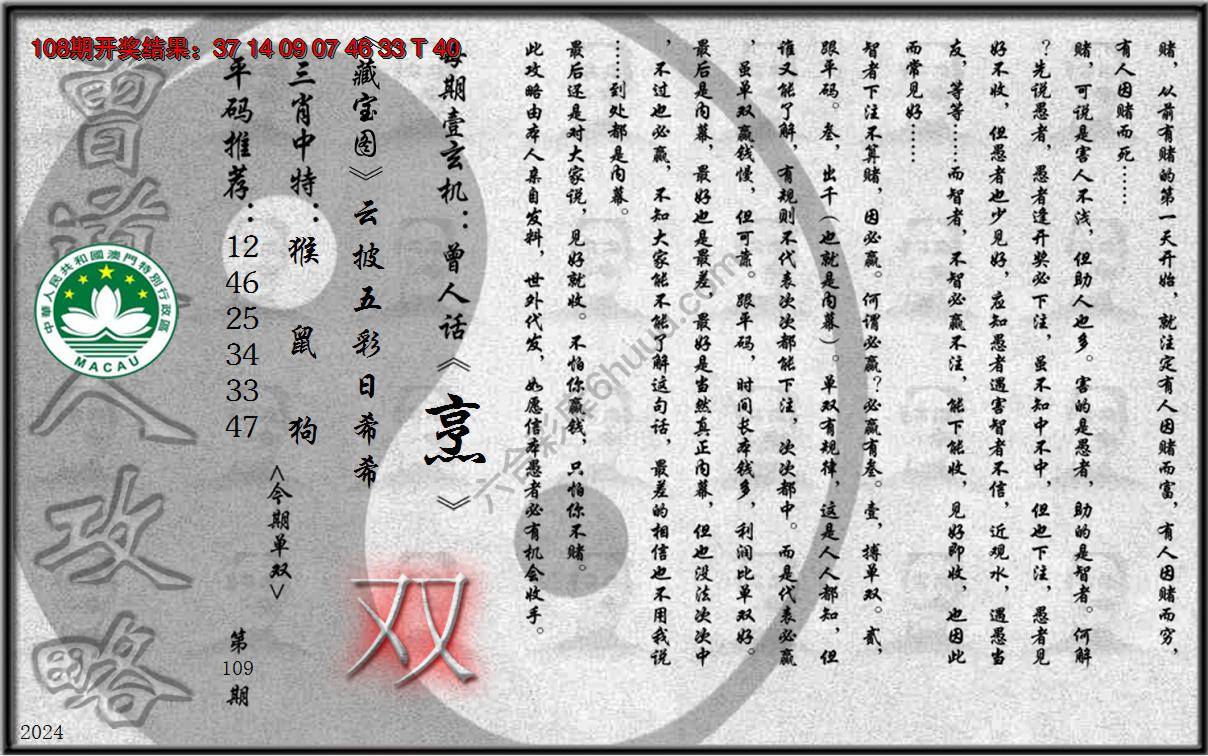 108期开奖结果：37 14 09 07 46 33 T 40
赌，从前有赌的第一天开始，就注定有人因赌而富，有人因赌而穷，
有人因赌而死……
赌，可说是害人不浅，但助人也多。害的是愚者，助的是智者。何解
？先说愚者，愚者逢开奖必下注，虽不知中不中，但也下注，愚者见
好不收，但愚者也少见好，应知愚者遇害智者不信，近观水，遇愚当
友，等等……而智者，不智必赢不注，能下能收，见好即收，也因此
而常见好……
智者下注不算赌，因必赢。何谓必赢？必赢有叁。壹，搏单双。贰，
跟平码。叁，出千（也就是内幕）。单双有规律，这是人人都知，但
谁又能了解，有规则不代表次次都能下注，次次都中。而是代表必赢
，虽单双赢钱慢，但可靠。跟平码，时间长本钱多，利润比单双好。
最后是内幕，最好也是最差，最好是当然真正内幕，但也没法次次中
，不过也必赢，不知大家能不能了解这句话，最差的相信也不用我说
……到处都是内幕。
最后还是对大家说，见好就收。不怕你赢钱，只怕你不赌。
此攻略由本人亲自发料，世外代发，如愿信本愚者必有机会收手。
每期壹玄机：曾人话《烹》
《藏宝图》云披五彩日希希
双
三肖中特：猴 鼠 狗
<今期单双>
平码推荐：12 46 25 34 33 47
第109期
曾道人攻略
中華人民共和國澳門特別行政區
MACAU
2024